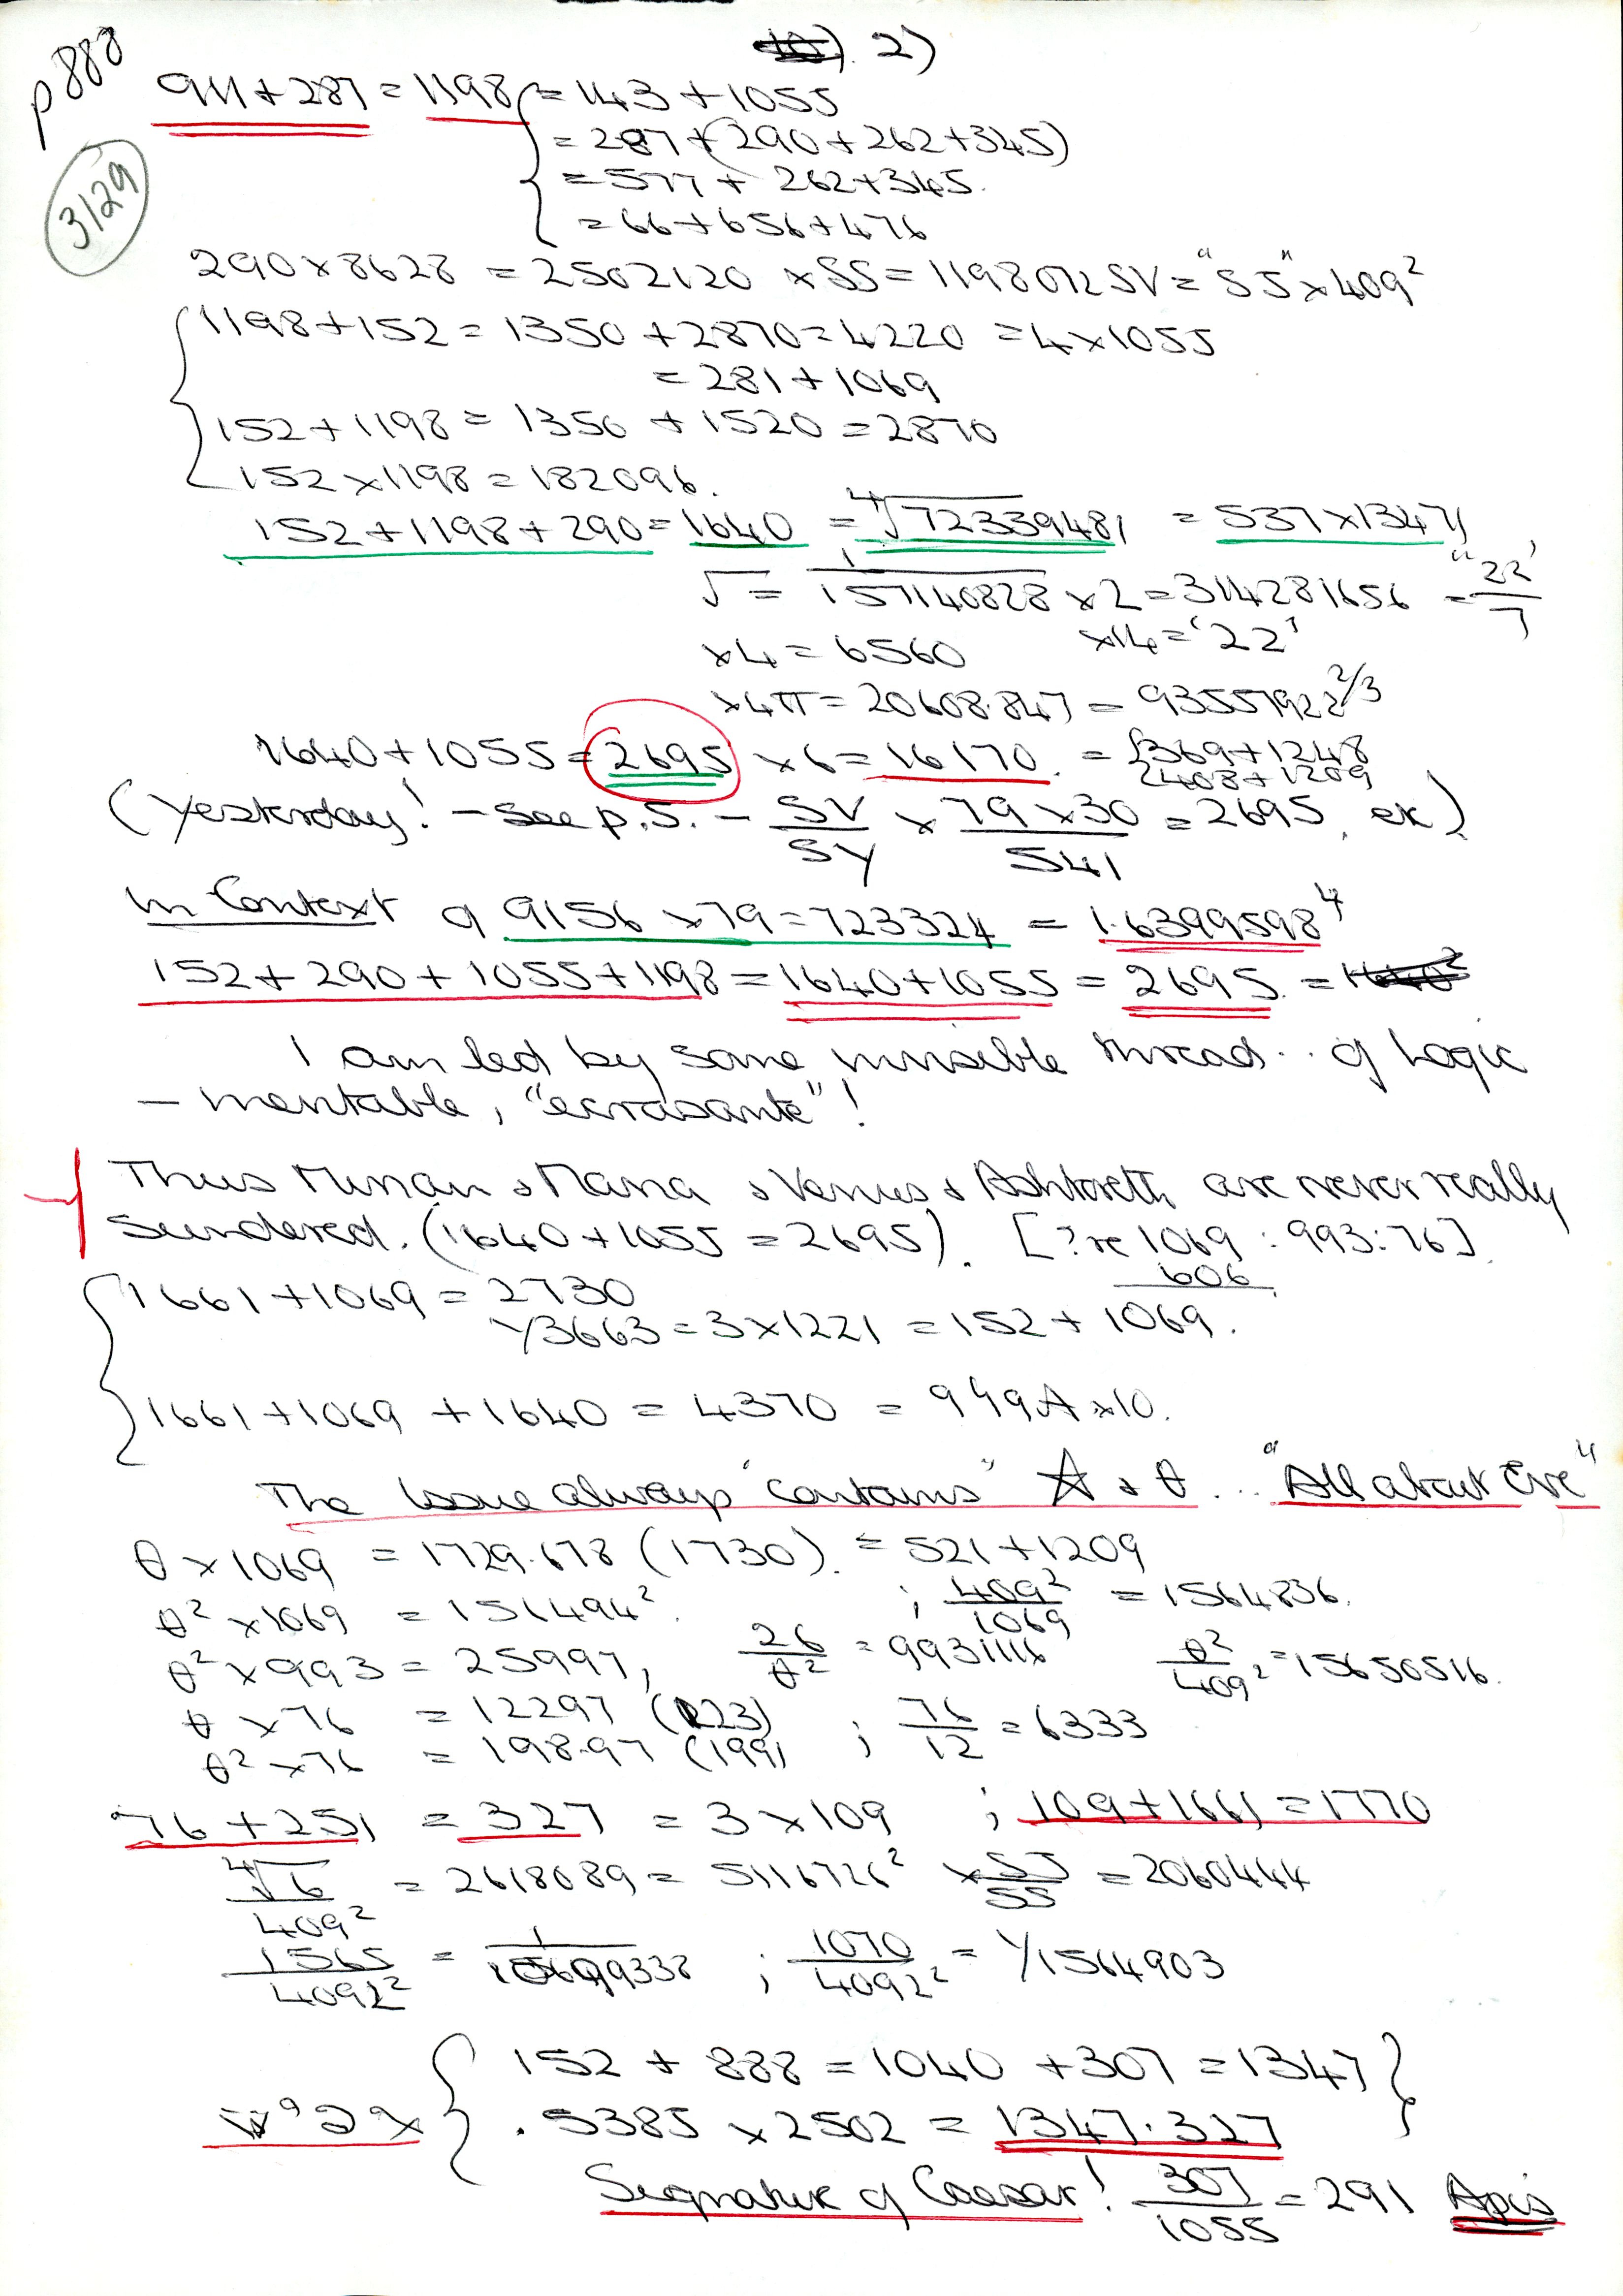 p888
2)
3129
911 + 287 = 1198 = 143 + 1055
= 287 + (290 + 262 + 345)
= 577 + 262 + 345.
= 66 + 656 + 476
290 × 8628 = 2502120 × SS = 1198072 SV = "SS" × 409²
1198 + 152 = 1350 + 2870 = 4220 = 4 × 1055
= 281 + 1069
152 + 1198 = 1350 + 1520 = 2870
152 × 1198 = 182096.
152 + 1198 + 290 = 1640 = ⁴√72339481 = 537 × 1347
√ = 1/157140828 × 2 = 314281656 = "22"/7
× 4 = 6560 ×14 = '22'
× 4π = 20608.847 = 93557922^2/3
1640 + 1055 = 2695 × 6 = 16170. = {369 + 1248
408 + 1209
(Yesterday! – See p.5. – SV/SY × 79 × 30/541 = 2695, ex)
In Context of 9156 × 79 = 723324 = 1.6399598⁴
152 + 290 + 1055 + 1198 = 1640 + 1055 = 2695. =
I am led by some invisible thread.. of Logic
– inevitable, "ecrasante"!
Thus Mirian & Maria & Venus & Ashtoreth are never really
Sundered. (1640 + 1055 = 2695). [? re 1069 : 993 : 76]
606
1661 + 1069 = 2730
1/3663 = 3 × 1221 = 152 + 1069.
1661 + 1069 + 1640 = 4370 = 949A × 10.
The Issue always "contains" ☆ & θ... "All about Eve"
θ × 1069 = 1729.678 (1730). = 521 + 1209
θ² × 1069 = 151494². ; 409²/1069 = 1564836.
θ² × 993 = 25997, 26/θ² = 9931116 θ²/409² = 15650516.
θ × 76 = 12297 (123) ; 76/12 = 6333
θ² × 76 = 198.97 (199)
76 + 251 = 327 = 3 × 109 ; 109 + 1661 = 1770
⁴√6/409² = 2618089 = 5116726² × SS/55 = 2060444
1565/4092² = ; 1070/4092² = 1/1564903
152 + 888 = 1040 + 307 = 1347
.5385 × 2502 = 1347.327
Signature of Caesar! 307/1055 = 291 Apis